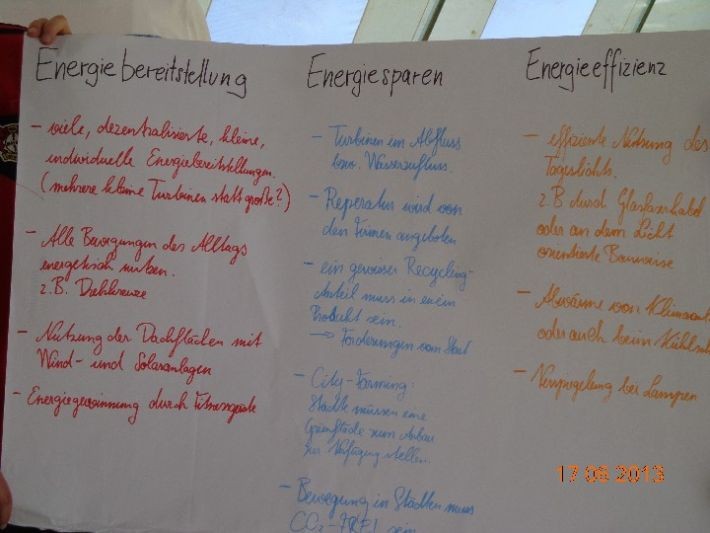 Energiebereitstellung
- viele, dezentralisierte, kleine,
individuelle Energiebereitstellungen.
(mehrere kleine Turbinen statt große?)
- Alle Bewegungen des Alltags
energetisch nutzen.
z.B. Drehkreuze
- Nutzung der Dachflächen mit
Wind- und Solaranlagen
- Energiegewinnung durch Fitnessgeräte
Energiesparen
- Turbinen im Abfluss
bzw. Wasserzufluss.
- Reperatur wird von
den Firmen angeboten
- ein gewisser Recycling-
Anteil muss in
Produkt sein.
→ Förderungen vom Staat
- City-Farming:
Städte müssen eine
zum Anbau
zur Verfügung stellen.
- Bewegung in Städten muss
CO2-FREI sein
Energieeffizienz
- effiziente Nutzung des
Tageslichts.
z.B durch Glasfaserkabel
oder an dem Licht
orientierte Bauweise
- Abwärme von
oder auch beim
- bei Lampen
17 09 2013